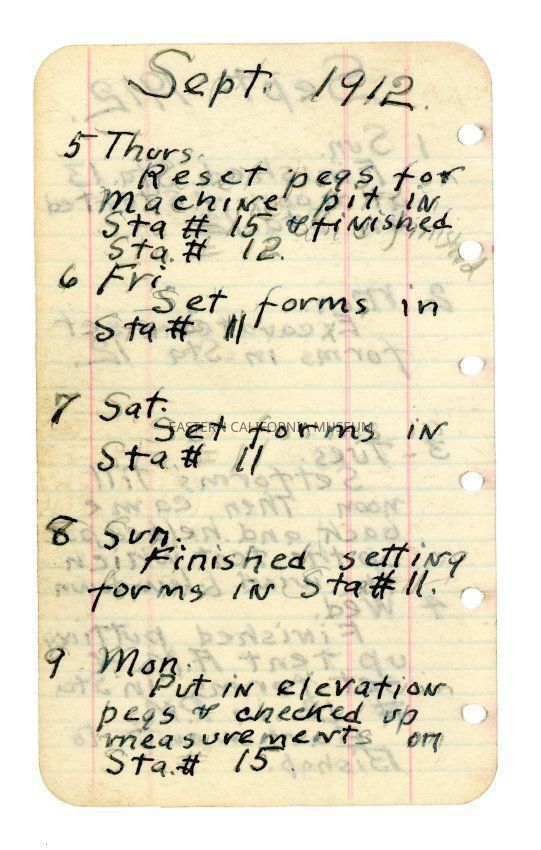 Sept. 1912.
5 Thurs.
Reset pegs for
Machine pit in
Sta # 15 & finished
Sta. # 12.
6 Fri.
Set forms in
Sta # 11
7 Sat.
EASTERN CALIFORNIA MUSEUM
Set forms in
Sta # 11
8 Sun.
Finished setting
forms in Sta # 11.
9 Mon.
Put in elevation
pegs & checked up
measurements on
Sta. # 15